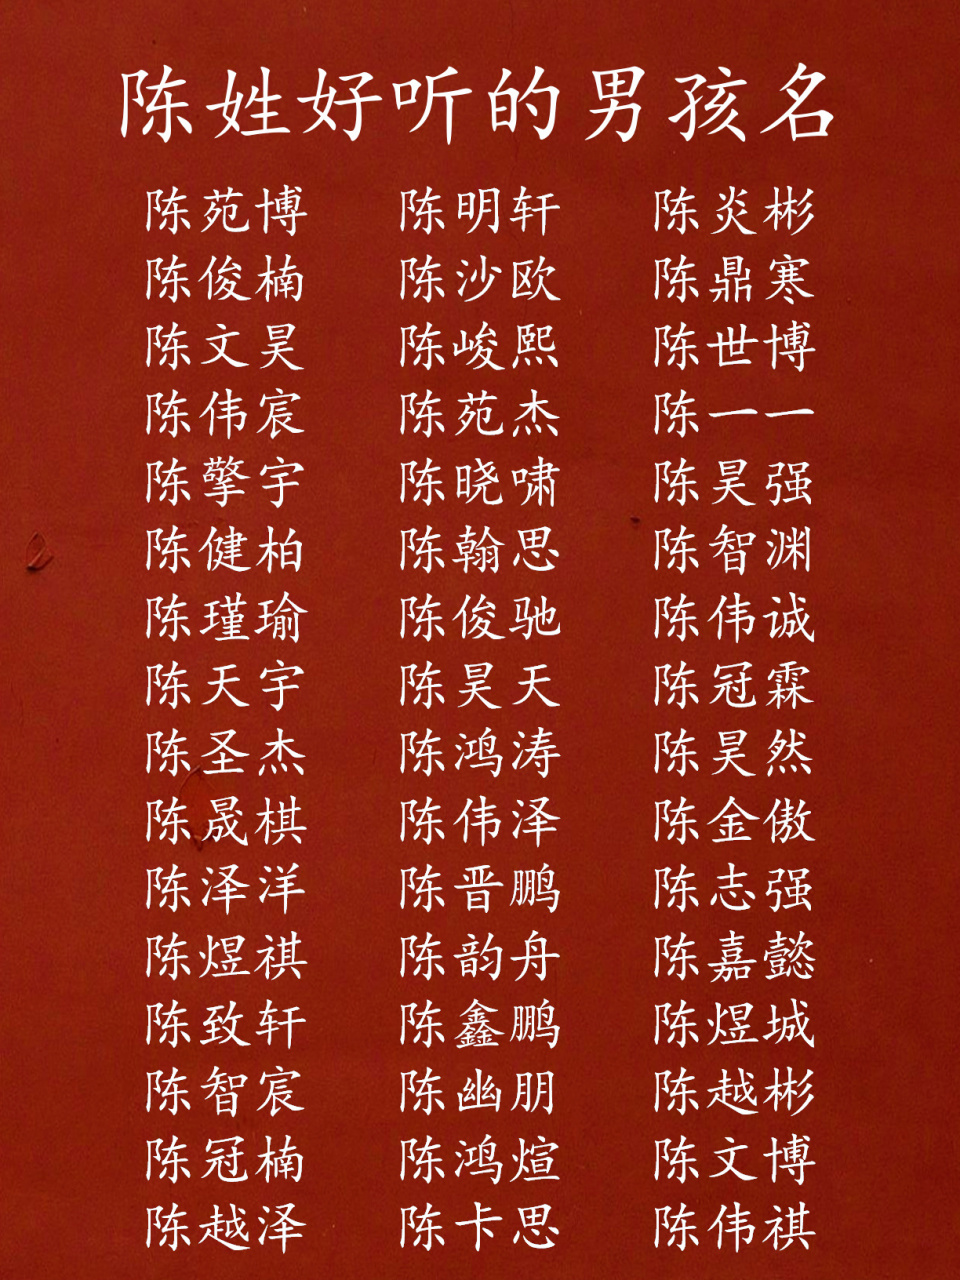 陈姓好听的男孩名
陈苑博 陈明轩 陈炎彬
陈俊楠 陈沙欧 陈鼎寒
陈文昊 陈峻熙 陈世博
陈伟宸 陈苑杰 陈一一
陈擎宇 陈晓啸 陈昊强
陈健柏 陈翰思 陈智渊
陈瑾瑜 陈俊驰 陈伟诚
陈天宇 陈昊天 陈冠霖
陈圣杰 陈鸿涛 陈昊然
陈晟棋 陈伟泽 陈金傲
陈泽洋 陈晋鹏 陈志强
陈煜祺 陈韵舟 陈嘉懿
陈致轩 陈鑫鹏 陈煜城
陈智宸 陈幽朋 陈越彬
陈冠楠 陈鸿煊 陈文博
陈越泽 陈卡思 陈伟祺